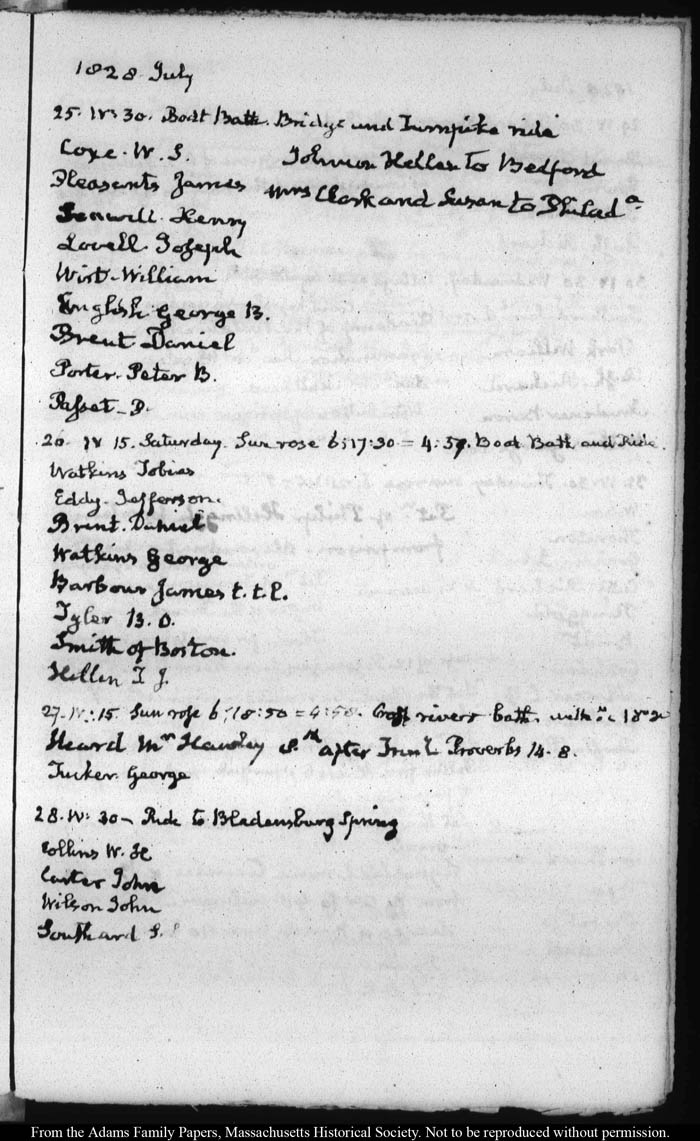 1828. July
25. IV:30. Boat Bath. Bridge and Turnpike ride
Coxe. W. S. Johnson Hellen to Bedford
Pleasants James Mrs Clark and Susan to Philada.
Sewall. Henry
Lovell. Joseph
Wirt. William
English. George B.
Brent Daniel
Porter. Peter B.
Passet. D.
26. IV 15. Saturday. Sun rose 6:17:30 = 4:57. Boat Bath and Ride.
Watkins Tobias
Eddy. Jefferson.
Brent. Daniel
Watkins George
Barbour James t.t.l.
Tyler B. O.
Smith of Boston.
Hellen T J.
27. IV:15. Sun rose 6:18:50 = 4:58. Cross river bath. with
Heard Mr Hawley after Trinity Proverbs 14. 8.
Tucker George
28. IV: 30 - Ride to Bladensburg Spring
Collins W. H
Carter John
Wilson John
Southard S.
From the Adams Family Papers, Massachusetts Historical Society. Not to be reproduced without permission.